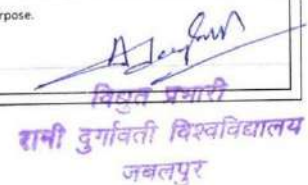 rpose.
विद्युत प्रभारी
रानी दुर्गावती विश्वविद्यालय
जबलपुर